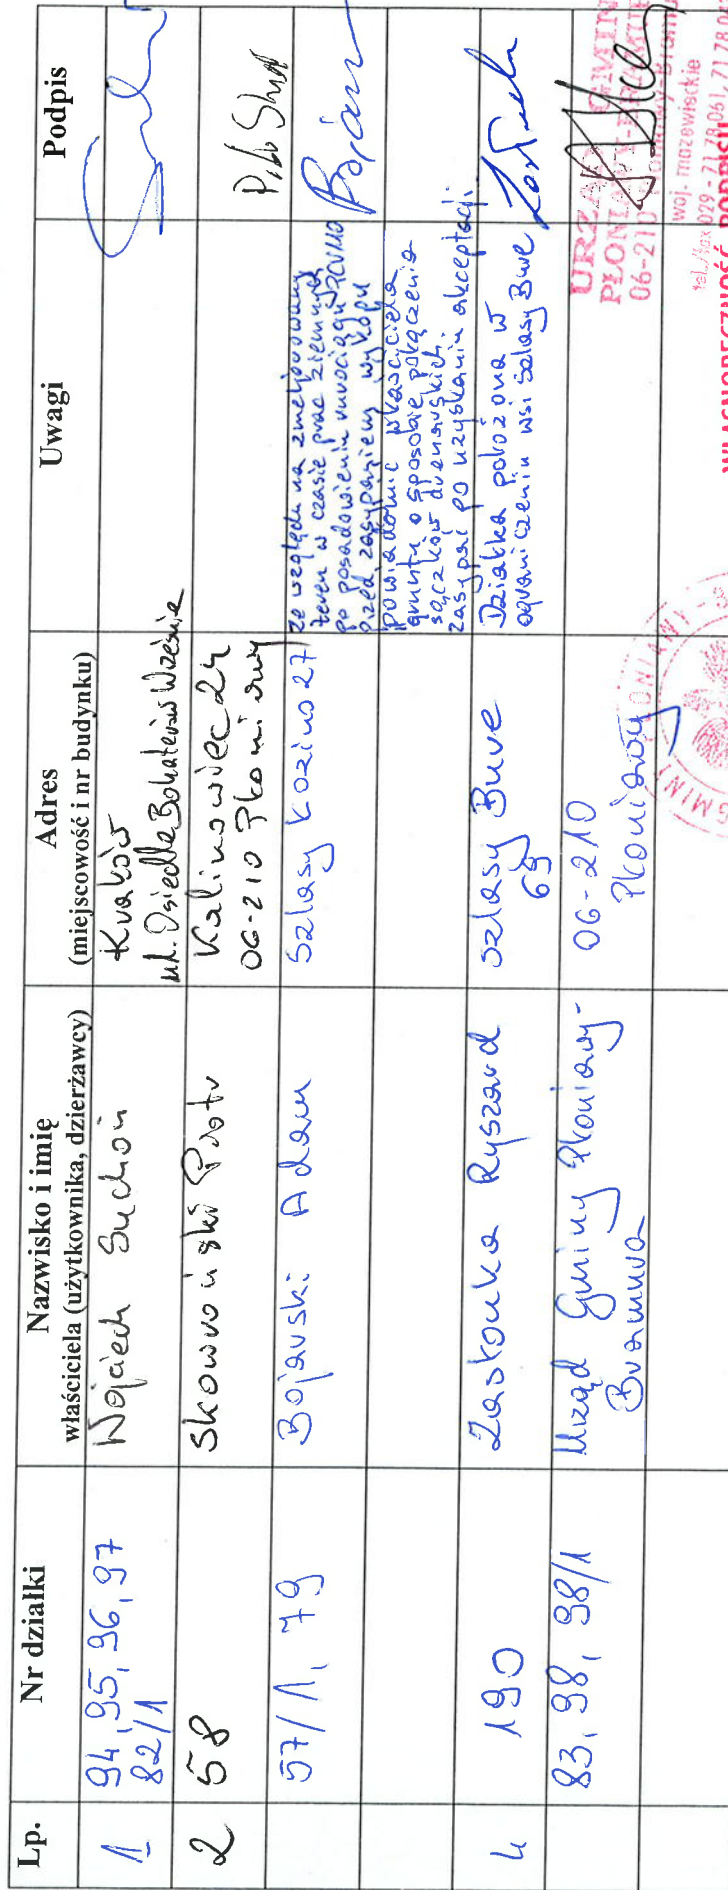 Lp.
Nr działki
Nazwisko i imię
właściciela (użytkownika, dzierżawcy)
Adres
(miejscowość i nr budynku)
Uwagi
Podpis
1
94, 95, 96, 97
82/1
Wojciech Suchoń
Kraków
ul. Osiedle Bohaterów Września
2
58
Skowroński Piotr
Kalinowiec 24
06-210 Płoniawy
57/1, 79
Bojarski Adam
Szlasy Łozino 27
Ze względu na zmeliorowany
teren w czasie prac ziemnych
po posadowieniu rurociągu
przed zasypaniem wykopu
powiadomić właściciela
gruntu o sposobie połączenia
sączków drenarskich.
Zasypać po uzyskaniu akceptacji.
4
190
Zastonka Ryszard
Szlasy Bure
69
Działka położona w
ograniczeniu wsi Szlasy Bure
83, 98, 98/1
Urząd Gminy Płoniawy-
Bramura
06-210
Płoniawy
URZĄD GMINY
PŁONIAWY-BRAMURA
06-210 Płoniawy-Bramura
woj. mazowieckie
tel./fax 029-7178061, 71780
WŁASNORĘCZNOŚĆ PODPISU